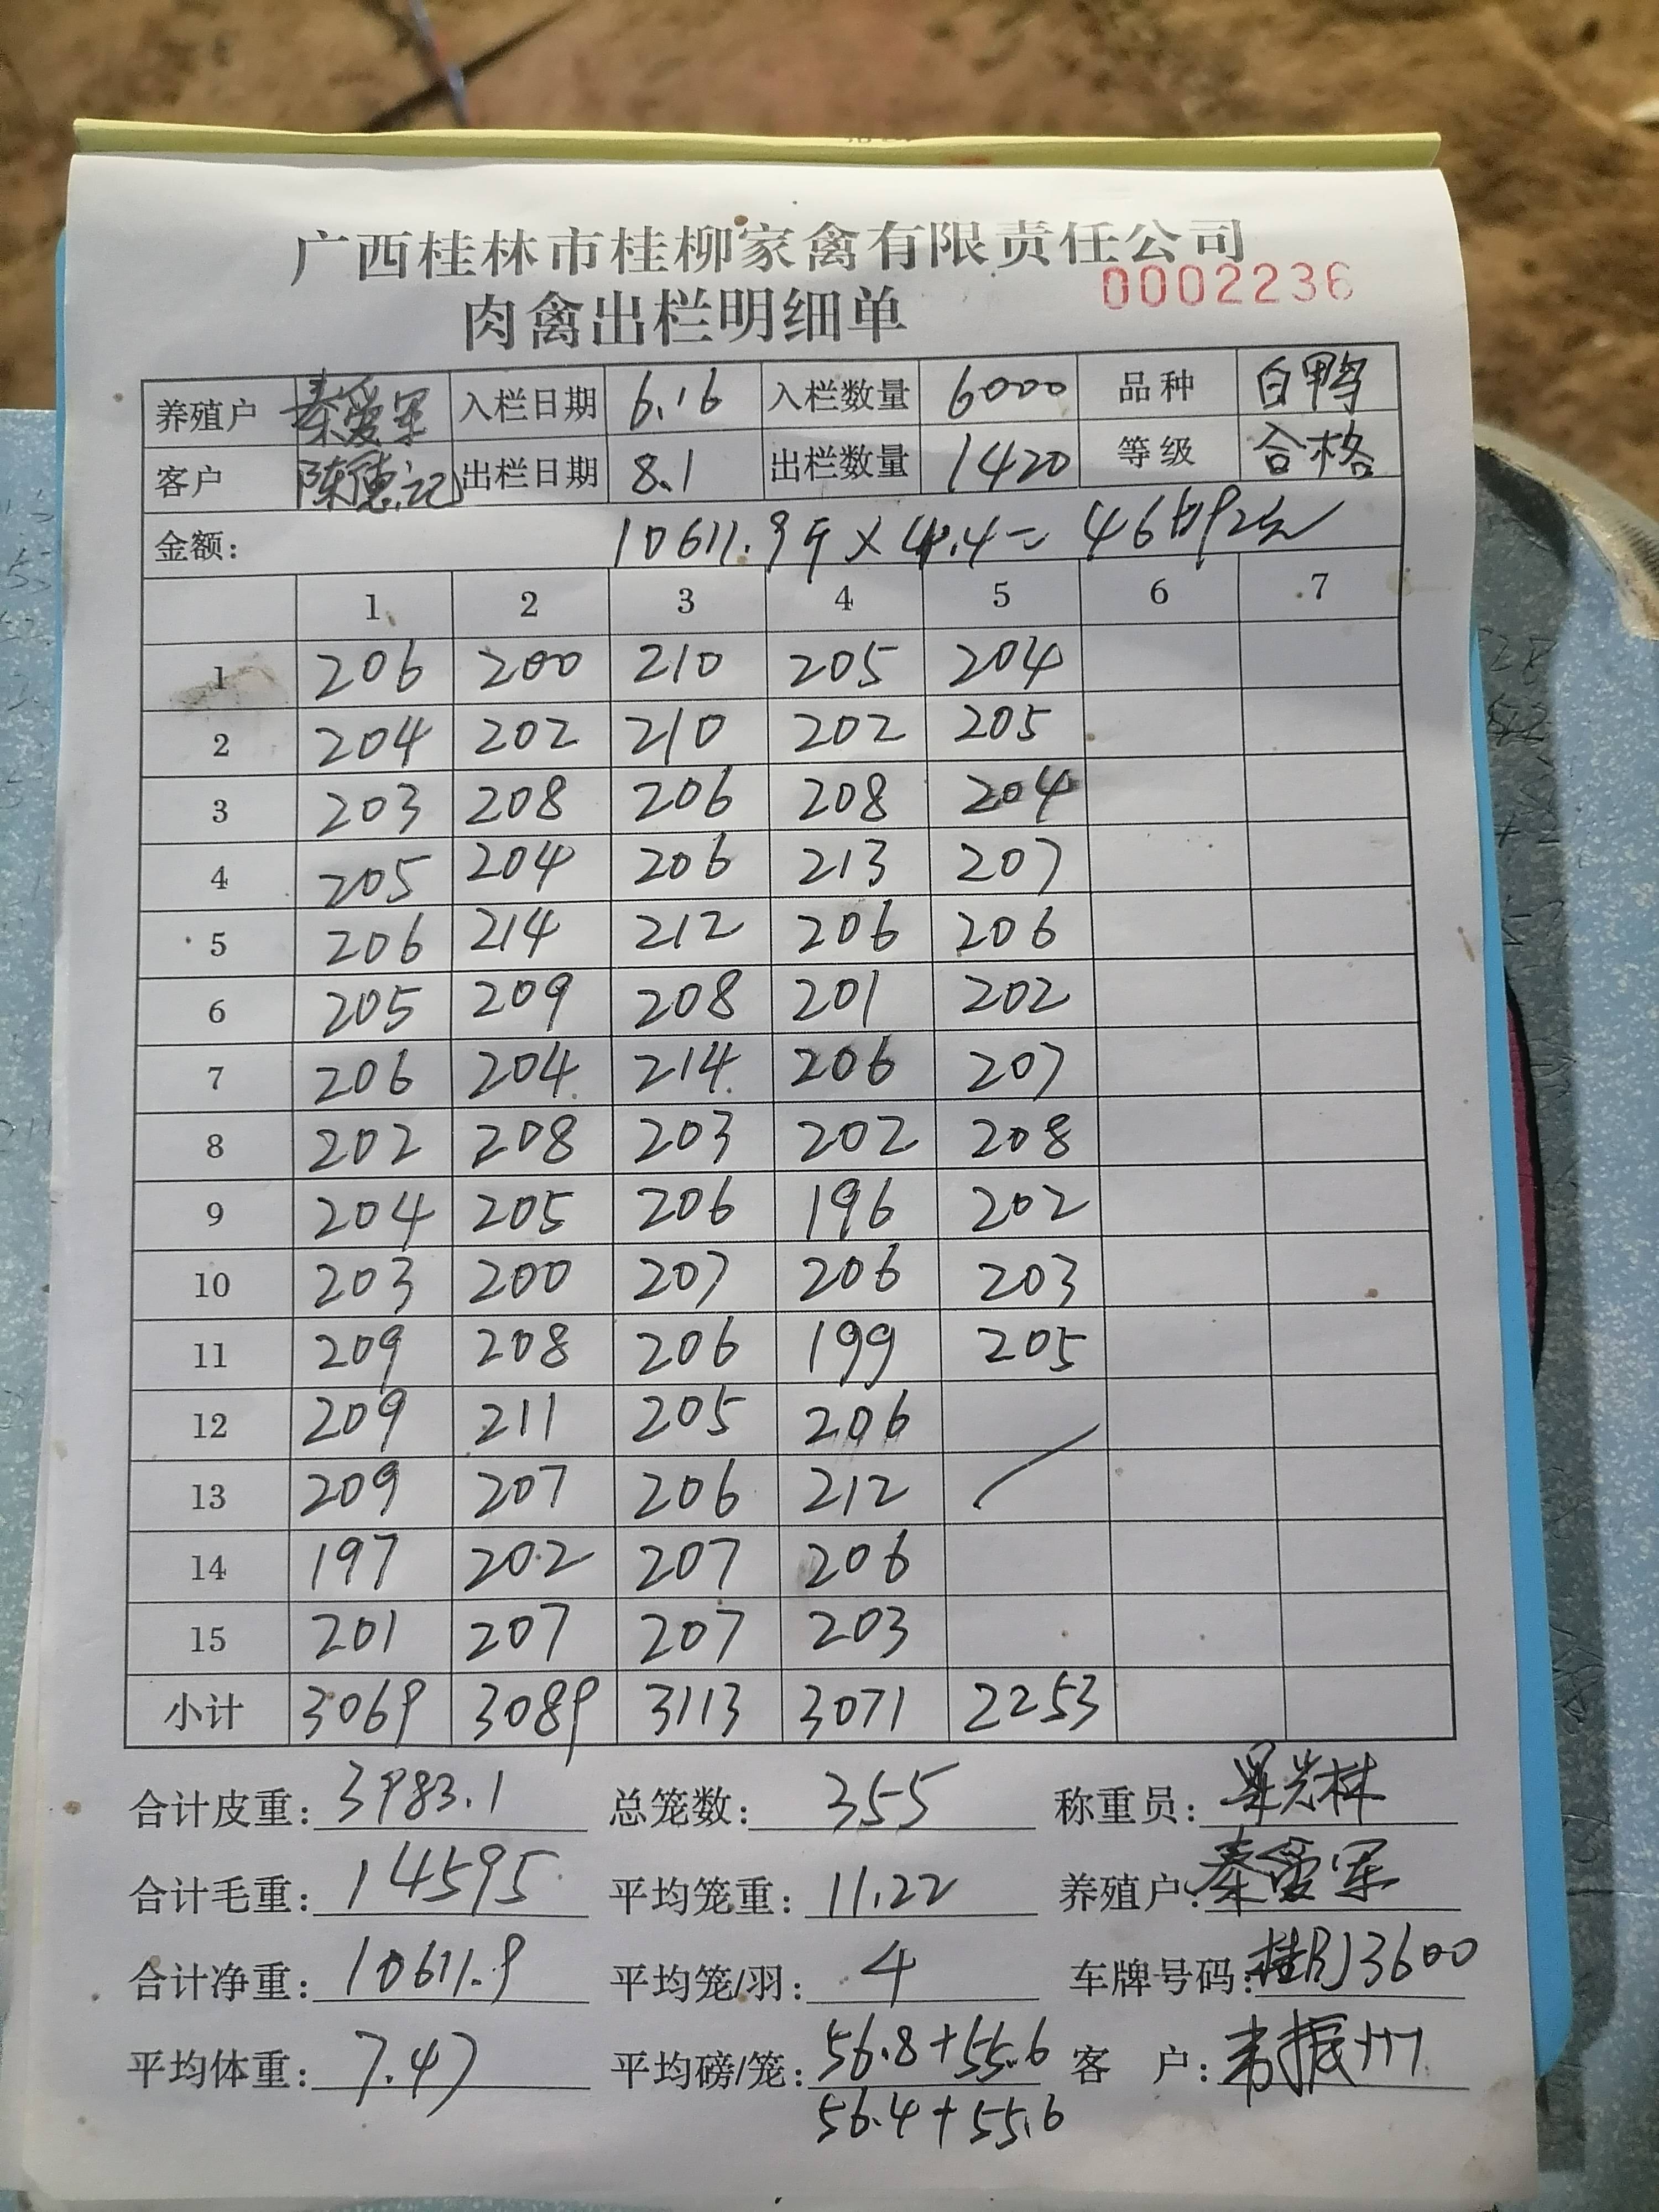 广西桂林市桂柳家禽有限责任公司
肉禽出栏明细单 0002236
养殖户 秦爱军 入栏日期 6.16 入栏数量 6000 品种 白鸭
客户 陈德记 出栏日期 8.1 出栏数量 1420 等级 合格
金额: 10611.9斤×4.4=
1 2 3 4 5 6 7
1 206 200 210 205 204
2 204 202 210 202 205
3 203 208 206 208 204
4 205 204 206 213 207
5 206 214 212 206 206
6 205 209 208 201 202
7 206 204 214 206 207
8 202 208 203 202 208
9 204 205 206 196 202
10 203 200 207 206 203
11 209 208 206 199 205
12 209 211 205 206
13 209 207 206 212
14 197 202 207 206
15 201 207 207 203
小计 3069 3089 3113 3071 2253
合计皮重: 3983.1 总笼数: 355 称重员:
合计毛重: 14595 平均笼重: 11.22 养殖户: 秦爱军
合计净重: 10611.9 平均笼/羽: 4 车牌号码: 桂RJ3600
平均体重: 7.47 平均磅/笼: 56.8+55.6 客 户: 韦振州
56.4+55.6